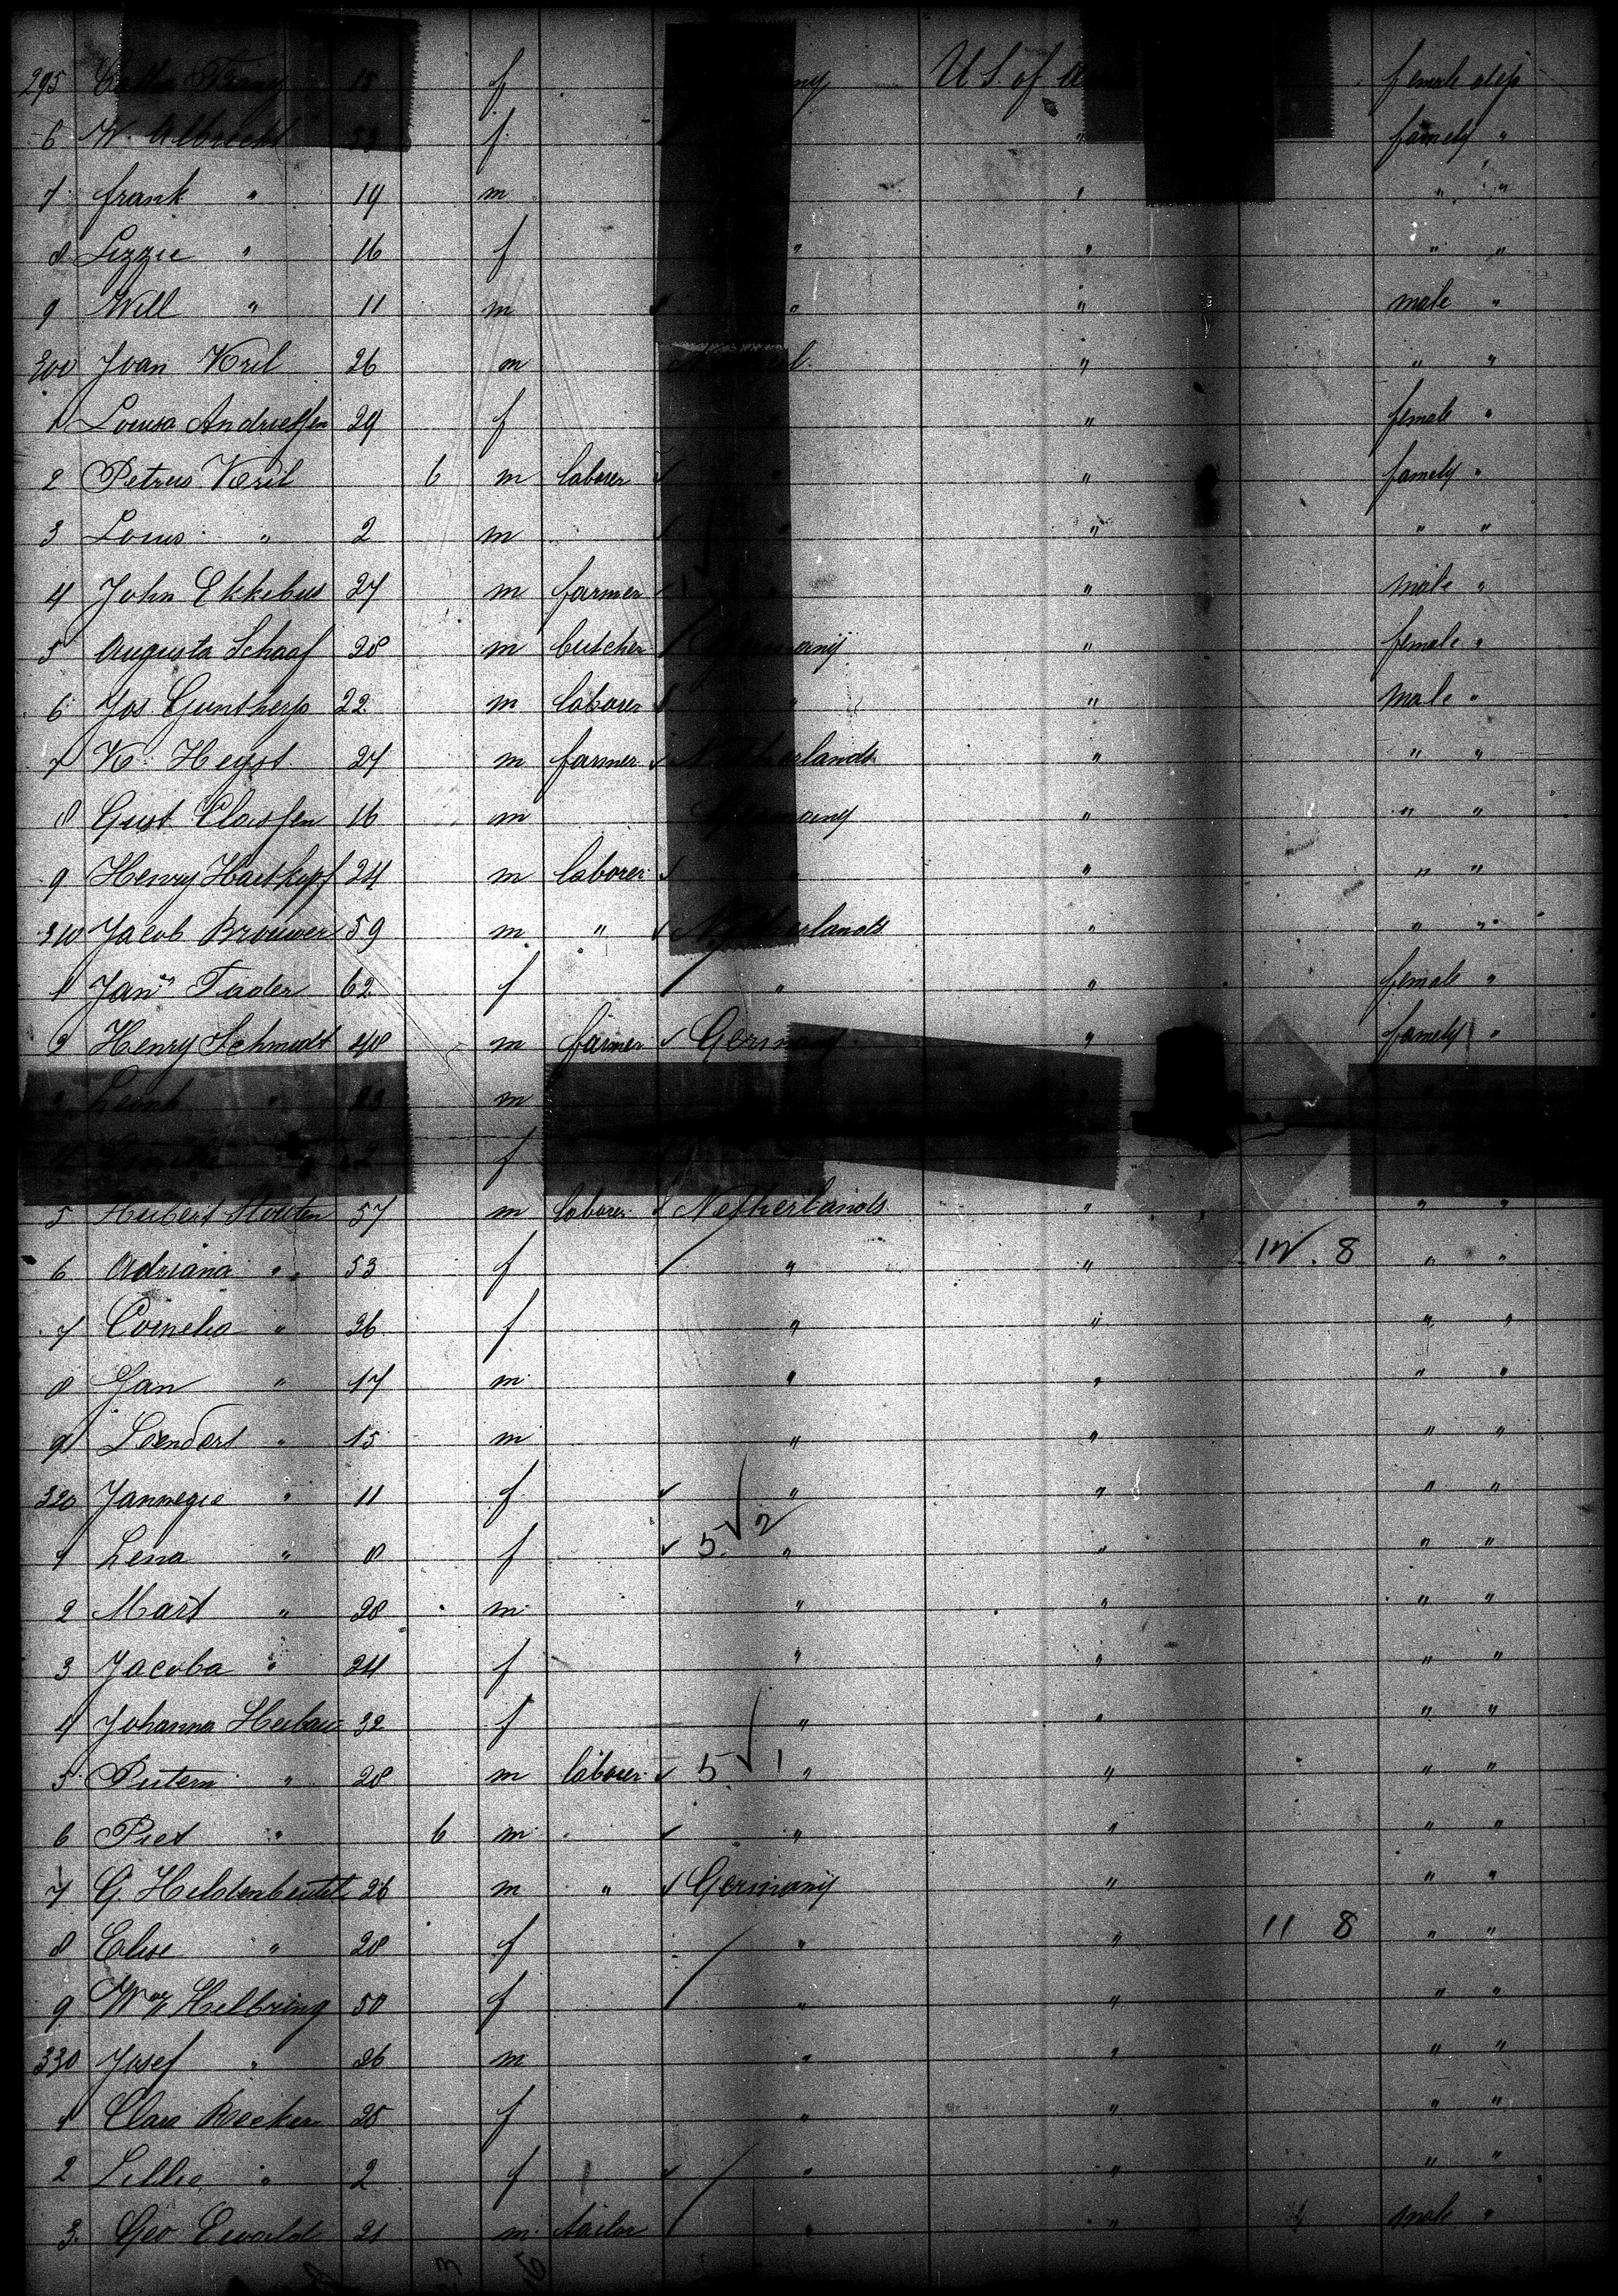 295 Franz 15 f U S. of female step
6 W. Albrecht f " family "
7 frank " 19 m " " "
8 Lizzie " 16 f " " " "
9 Will " 11 m " " male "
300 Joan Kril 26 m " " "
1 Louisa Andriessen 29 f " female "
2 Petrus Kril 6 m laborer " " family "
3 Louis " 2 m " " " "
4 John Ekkebus 27 m farmer " " male "
5 Augusta Schaaf 28 m butcher Germany " female "
6 Jos. 22 m laborer " " male "
7 K. Heyst 27 m farmer Netherlands " " "
8 Gust. Classen 16 m Germany " " "
9 Henry 24 m laborer " " " "
310 Jacob Brouwer 59 m " Netherlands " " "
1 Jan Tader 62 f " " female "
2 Henry Schmidt 48 m farmer Germany " family "
3 " 23 m
4 " f
5 Hubert Houten 57 m laborer Netherlands " " "
6 Adriana " 53 f " " 8 " "
7 Cornelia " 26 f " " " "
8 Jan " 17 m " " " "
9 Leendert " 15 m " " " "
320 Jannegie " 11 f " " " "
1 Lena " 8 f 5 2 " " " "
2 Mart " 28 m " " " "
3 Jacoba " 24 f " " " "
4 Johanna 32 f " " " "
5 " 28 m laborer 5 1 " " " "
6 Piet " 6 m " " " "
7 G. 26 m " Germany " " "
8 Elise " 28 f " " 11 8 " "
9 Helbring 50 f " " " "
330 Josef " 26 m " " " "
1 Clara Becker 25 f " " " "
2 Lillie " 2 f " " " "
3 Geo Ewald 21 m tailor " " male "